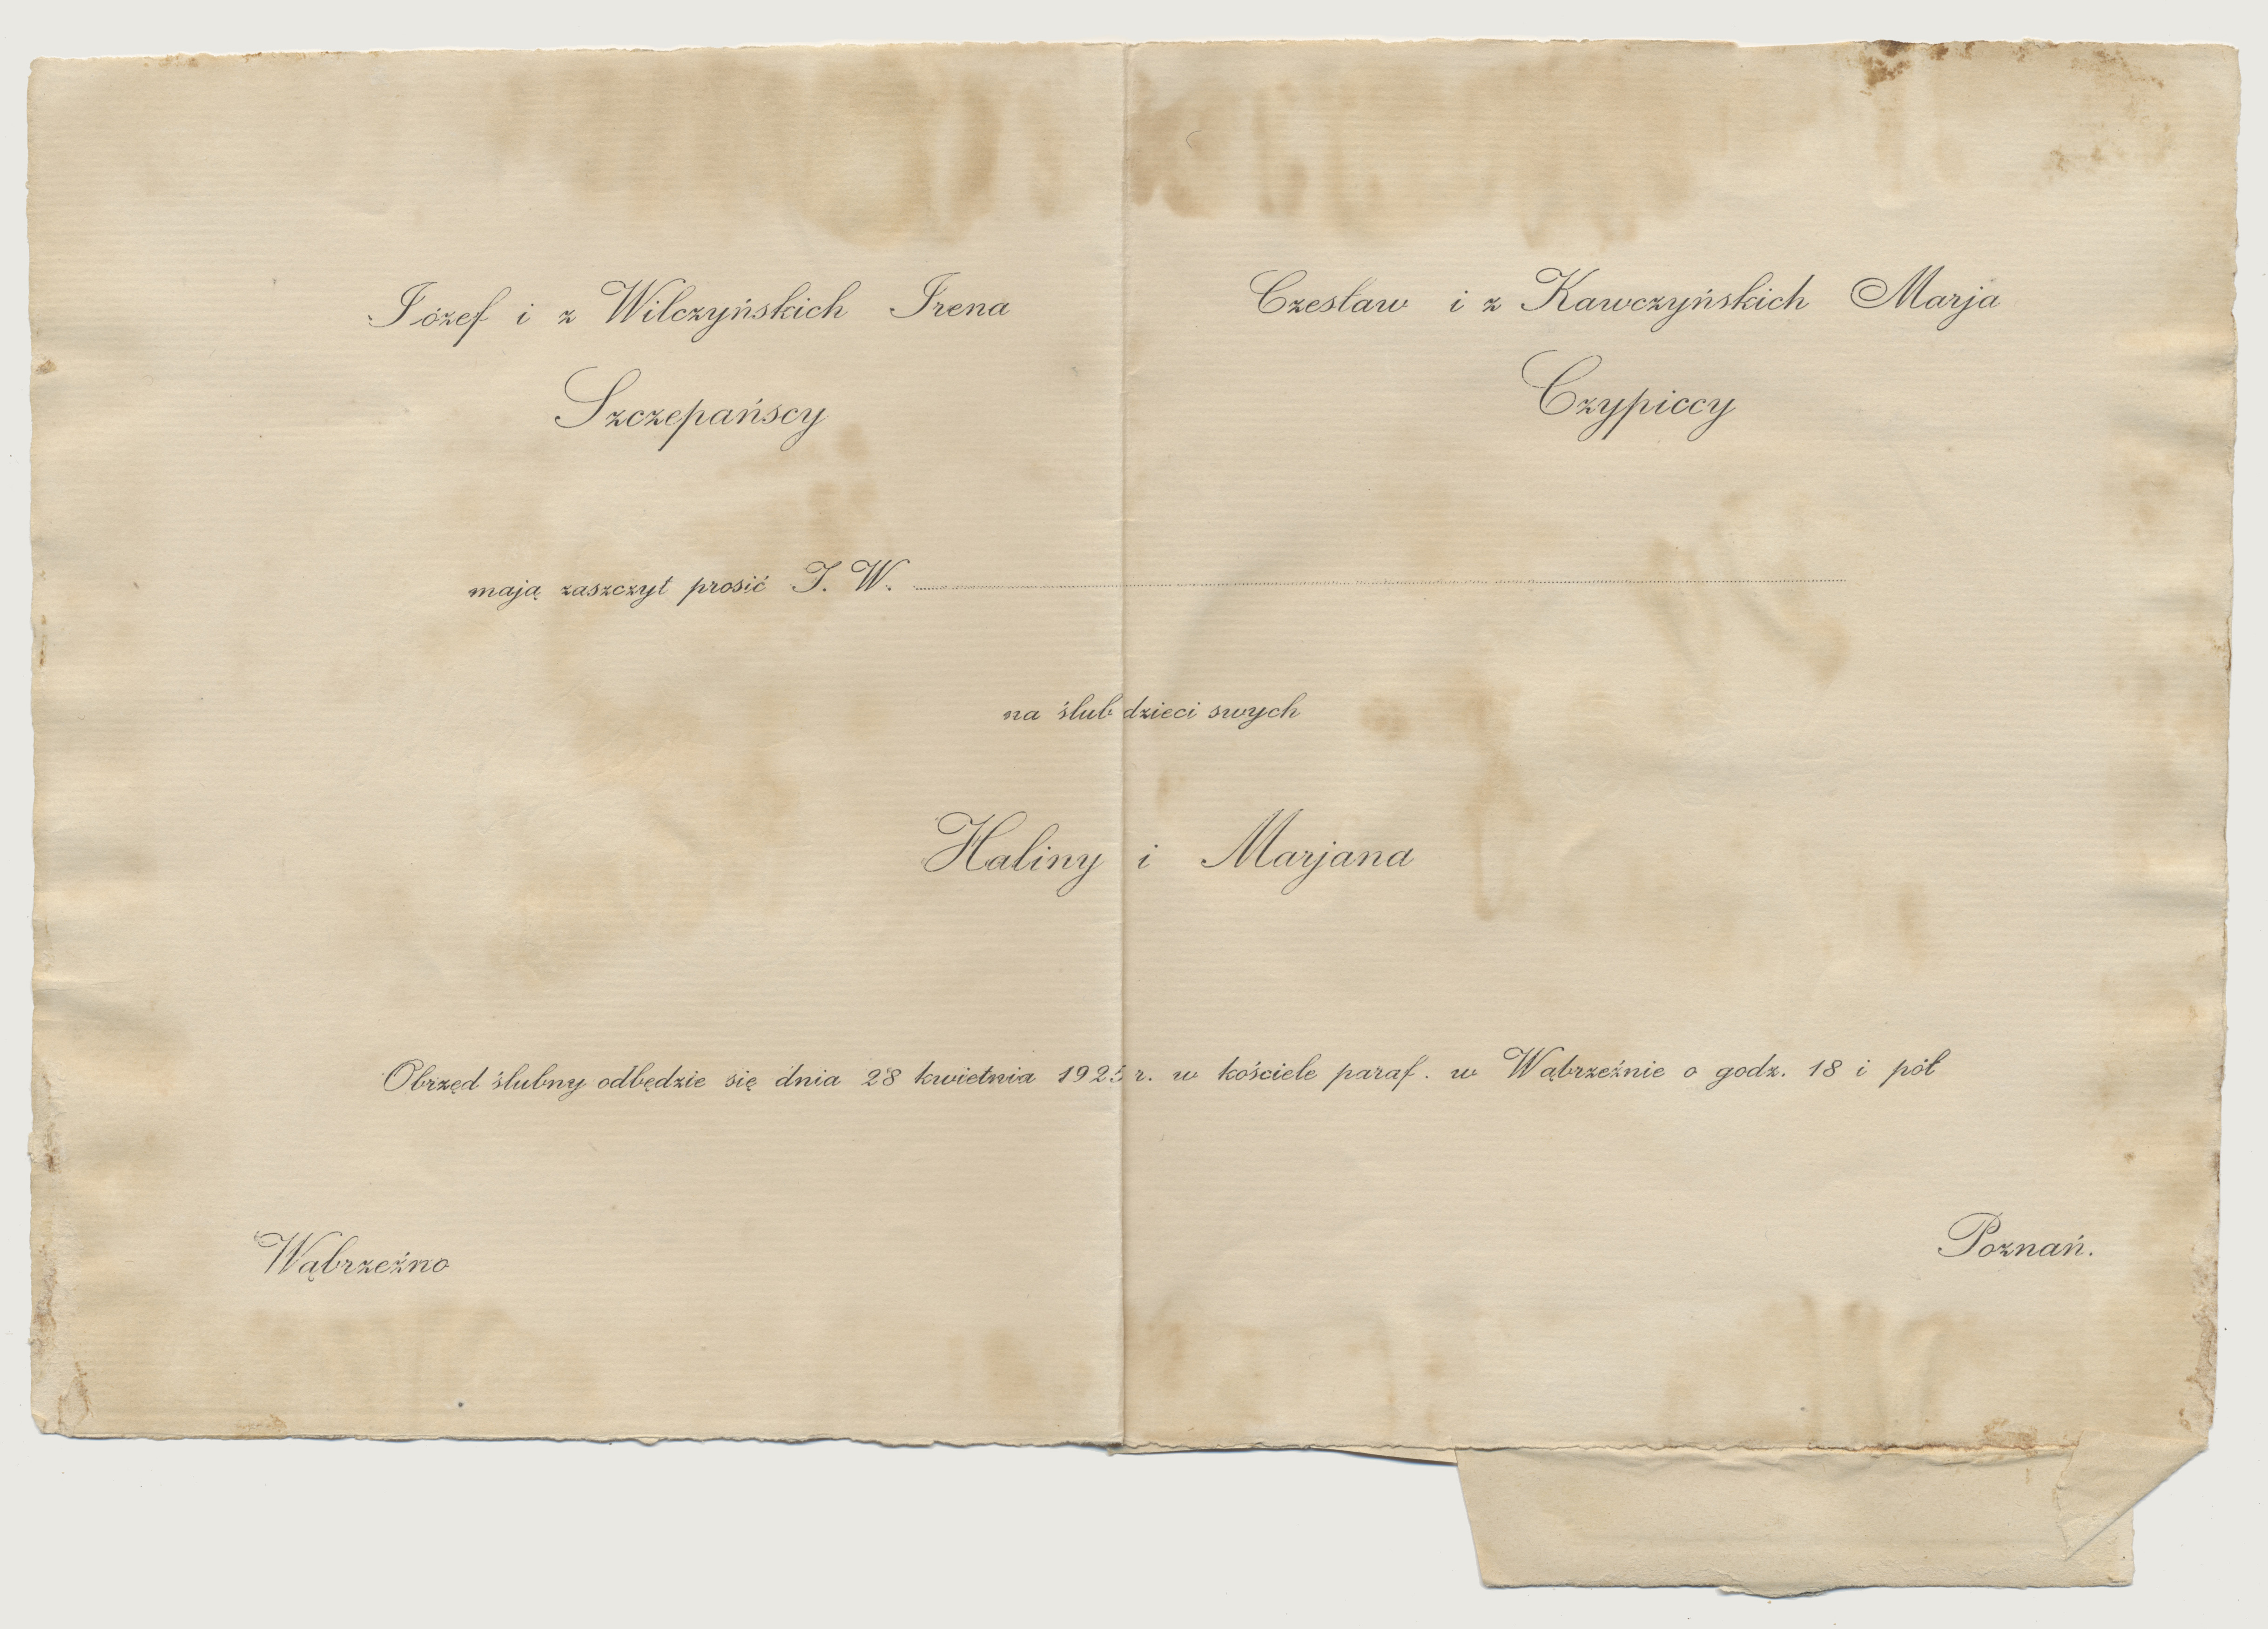 Józef i z Wilczyńskich Irena
Szczepańscy
Czesław i z Kawczyńskich Marja
Czypiccy
mają zaszczyt prosić J. W.
na ślub dzieci swych
Haliny i Marjana
Obrzęd ślubny odbędzie się dnia 28 kwietnia 1925 r. w kościele paraf. w Wąbrzeźnie o godz. 18 i pół
Wąbrzeźno
Poznań.